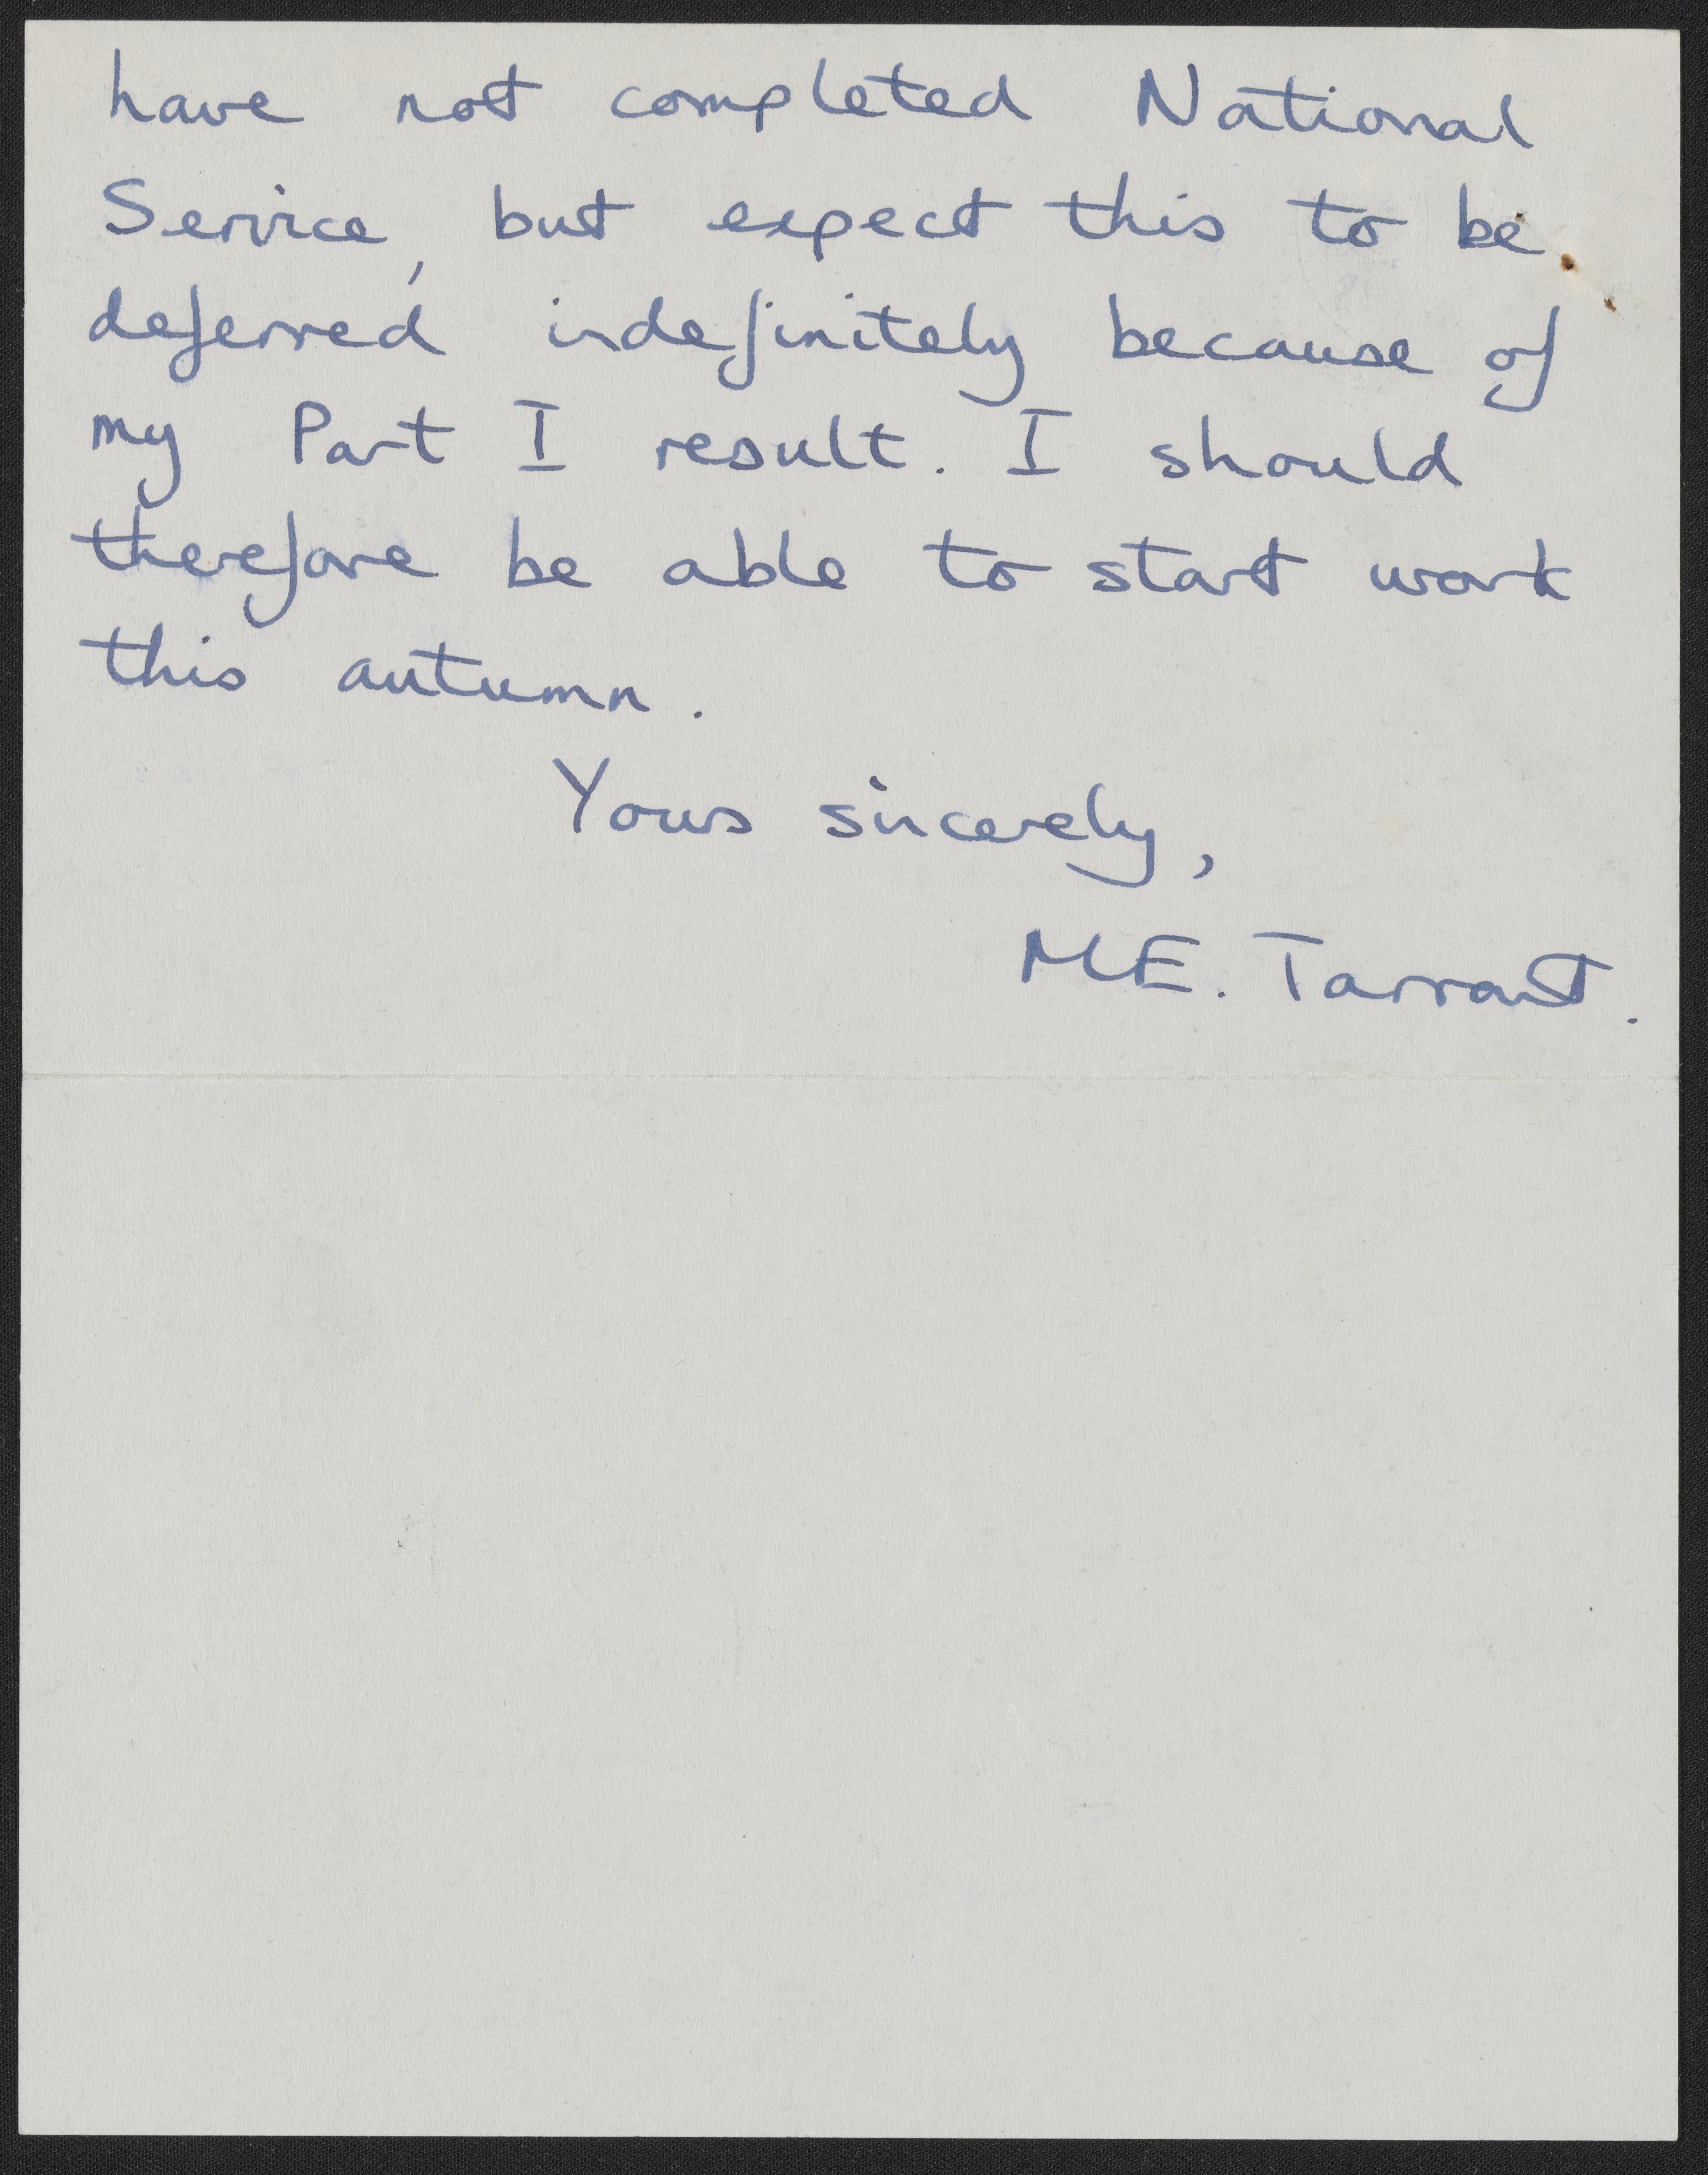 have not completed National
Service, but expect this to be
deferred indefinitely because of
my Part I result. I should
therefore be able to start work
this autumn.
Yours sincerely,
M.E. Tarrant.